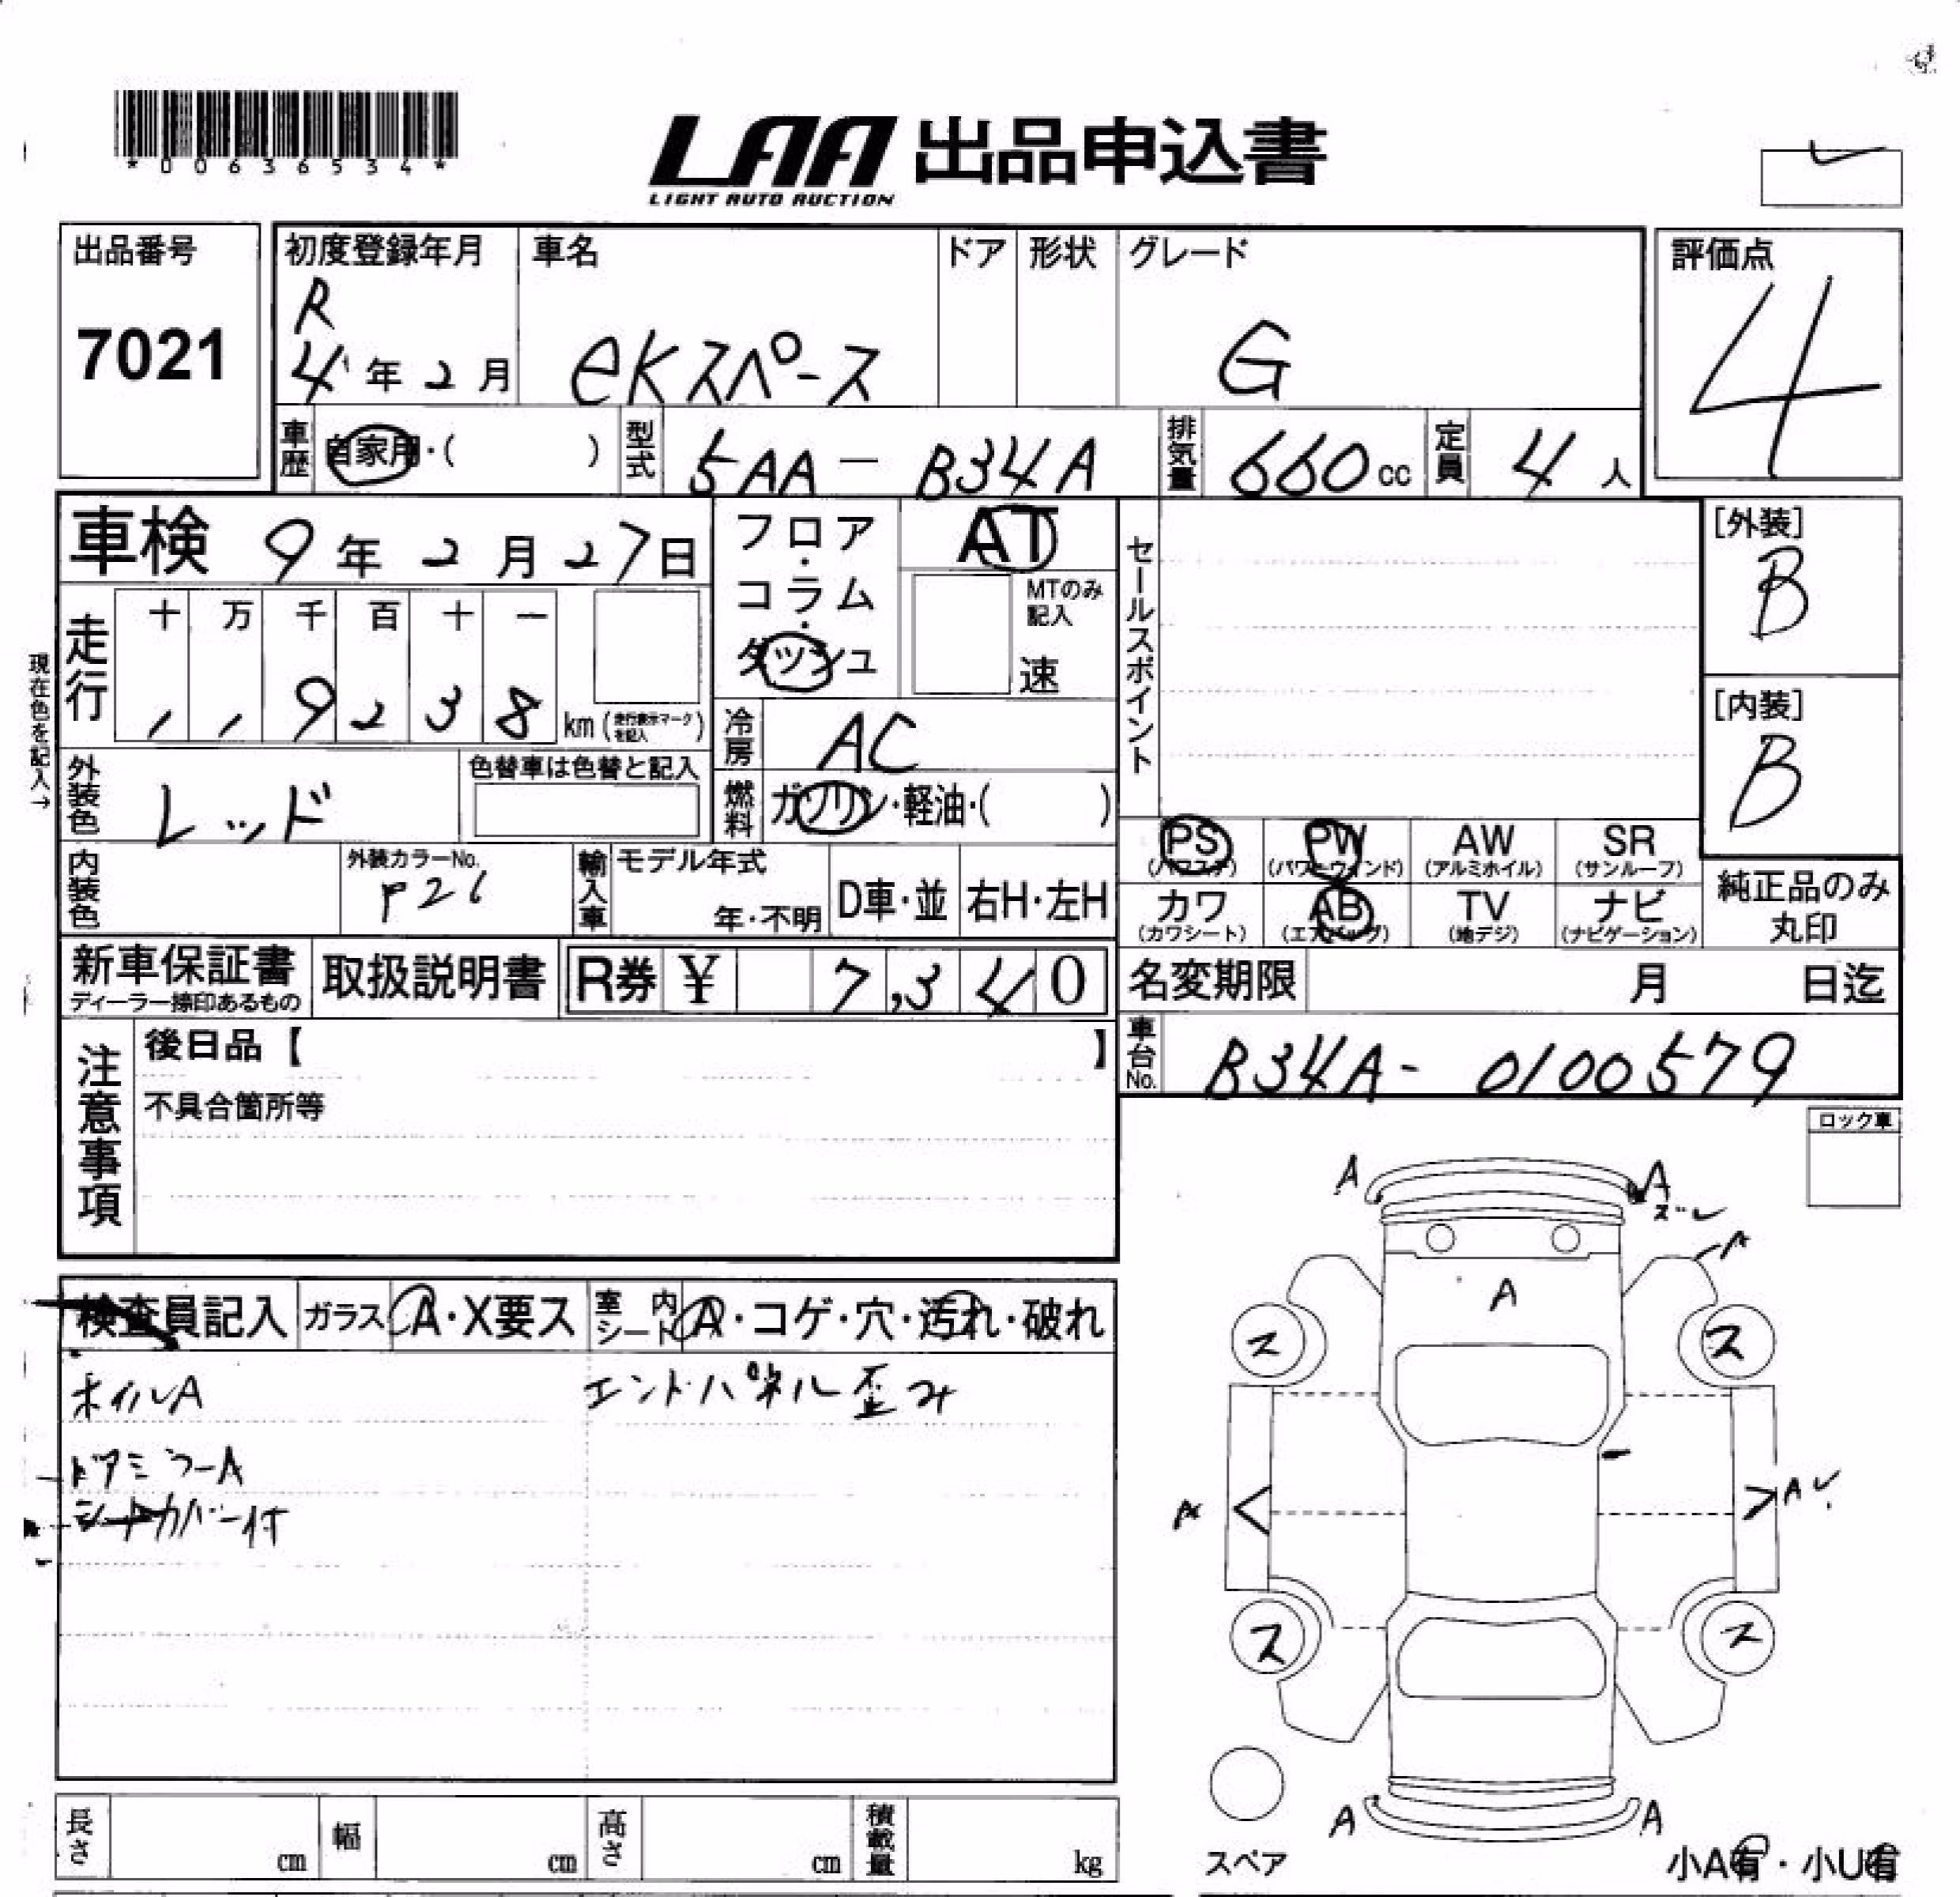 *00636534*
LAA 出品申込書
LIGHT AUTO AUCTION
出品番号
7021
初度登録年月
R
4年2月
車名
eKスペース
ドア
形状
グレード
G
評価点
4
車歴
自家用・( )
型式
5AA-B34A
排気量
660cc
定員
4人
車検 9年2月27日
フロア・コラム・ダッシュ
AT
MTのみ記入
速
セールスポイント
[外装]
B
[内装]
B
現在色を記入→
走行
十 万 千 百 十 一
, , 9 2 3 8 km (走行表示マークを記入)
冷房
AC
外装色
レッド
色替車は色替と記入
燃料
ガソリン・軽油・( )
PS
(パワステ)
PW
(パワーウインド)
AW
(アルミホイル)
SR
(サンルーフ)
カワ
(カワシート)
AB
(エアバッグ)
TV
(地デジ)
ナビ
(ナビゲーション)
純正品のみ
丸印
内装色
外装カラーNo.
P26
輸入車
モデル年式
年・不明
D車・並
右H・左H
新車保証書
ディーラー捺印あるもの
取扱説明書
R券 ¥ 7,340
名変期限 月 日迄
車台No.
B34A-0100579
注意事項
後日品【 】
不具合箇所等
ロック車
検査員記入
ガラス A・X要ス
室内シート A・コゲ・穴・汚れ・破れ
ホイルA
エンドパネル歪み
ドアミラーA
シートカバー付
A A
ズレ
A
A
ス ス
A A
ス ス
A A
スペア
小A有・小U有
長さ cm
幅 cm
高さ cm
積載量 kg